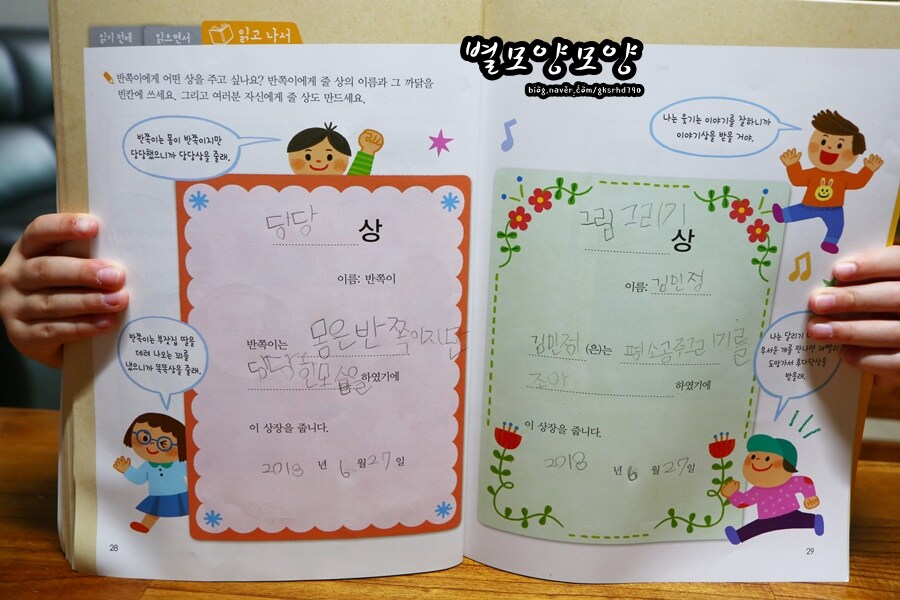 읽기 전에
읽으면서
읽고 나서
별모양모양
blog.naver.com/gksrhd790
반쪽이에게 어떤 상을 주고 싶나요? 반쪽이에게 줄 상의 이름과 그 까닭을
빈칸에 쓰세요. 그리고 여러분 자신에게 줄 상도 만드세요.
반쪽이는 몸이 반쪽이지만
당당했으니까 당당상을 줄래.
당당 상
이름: 반쪽이
반쪽이는 몸은반쪽이지만
당당한모습을 하였기에
이 상장을 줍니다.
2018 년 6 월 27 일
반쪽이는 부잣집 딸을
데려 나오는 꾀를
냈으니까 똑똑상을 줄래.
28
나는 웃기는 이야기를 잘하니까
이야기상을 받을 거야.
그림그리기
상
이름: 김민정
김민정 (은)는 평소공주그리기를
조아 하였기에
이 상장을 줍니다.
2018 년 6 월 27 일
나는 달리기
무서운 개를 만나면 재빨리
도망가서 후다닥상을
받을래.
29